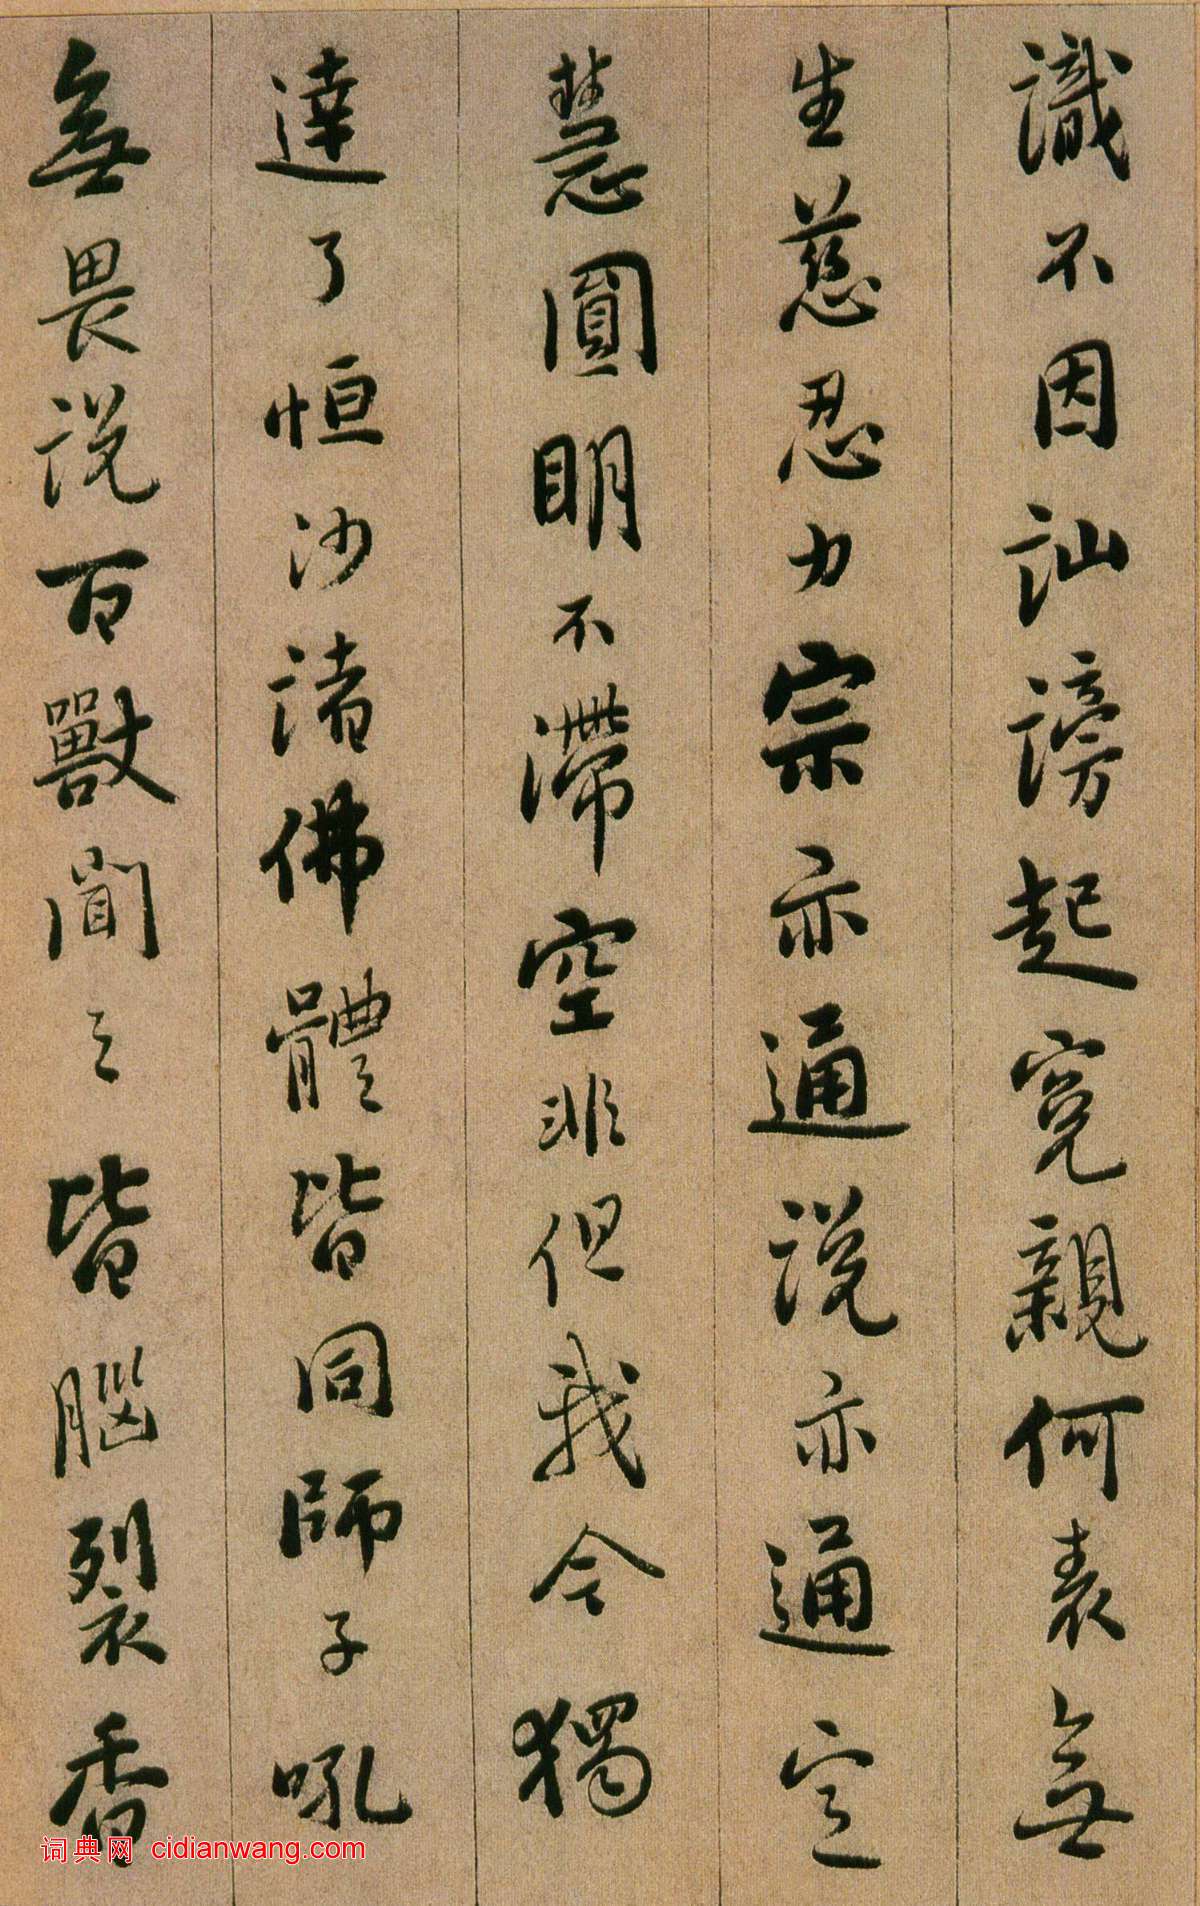 識不因訕謗起寃親何表無
生慈忍力宗亦通說亦通定
慧圓明不滯空非但我今獨
達了恒沙諸佛體皆同師子吼
無畏說百獸聞之皆腦裂香
词典网 cidianwang.com